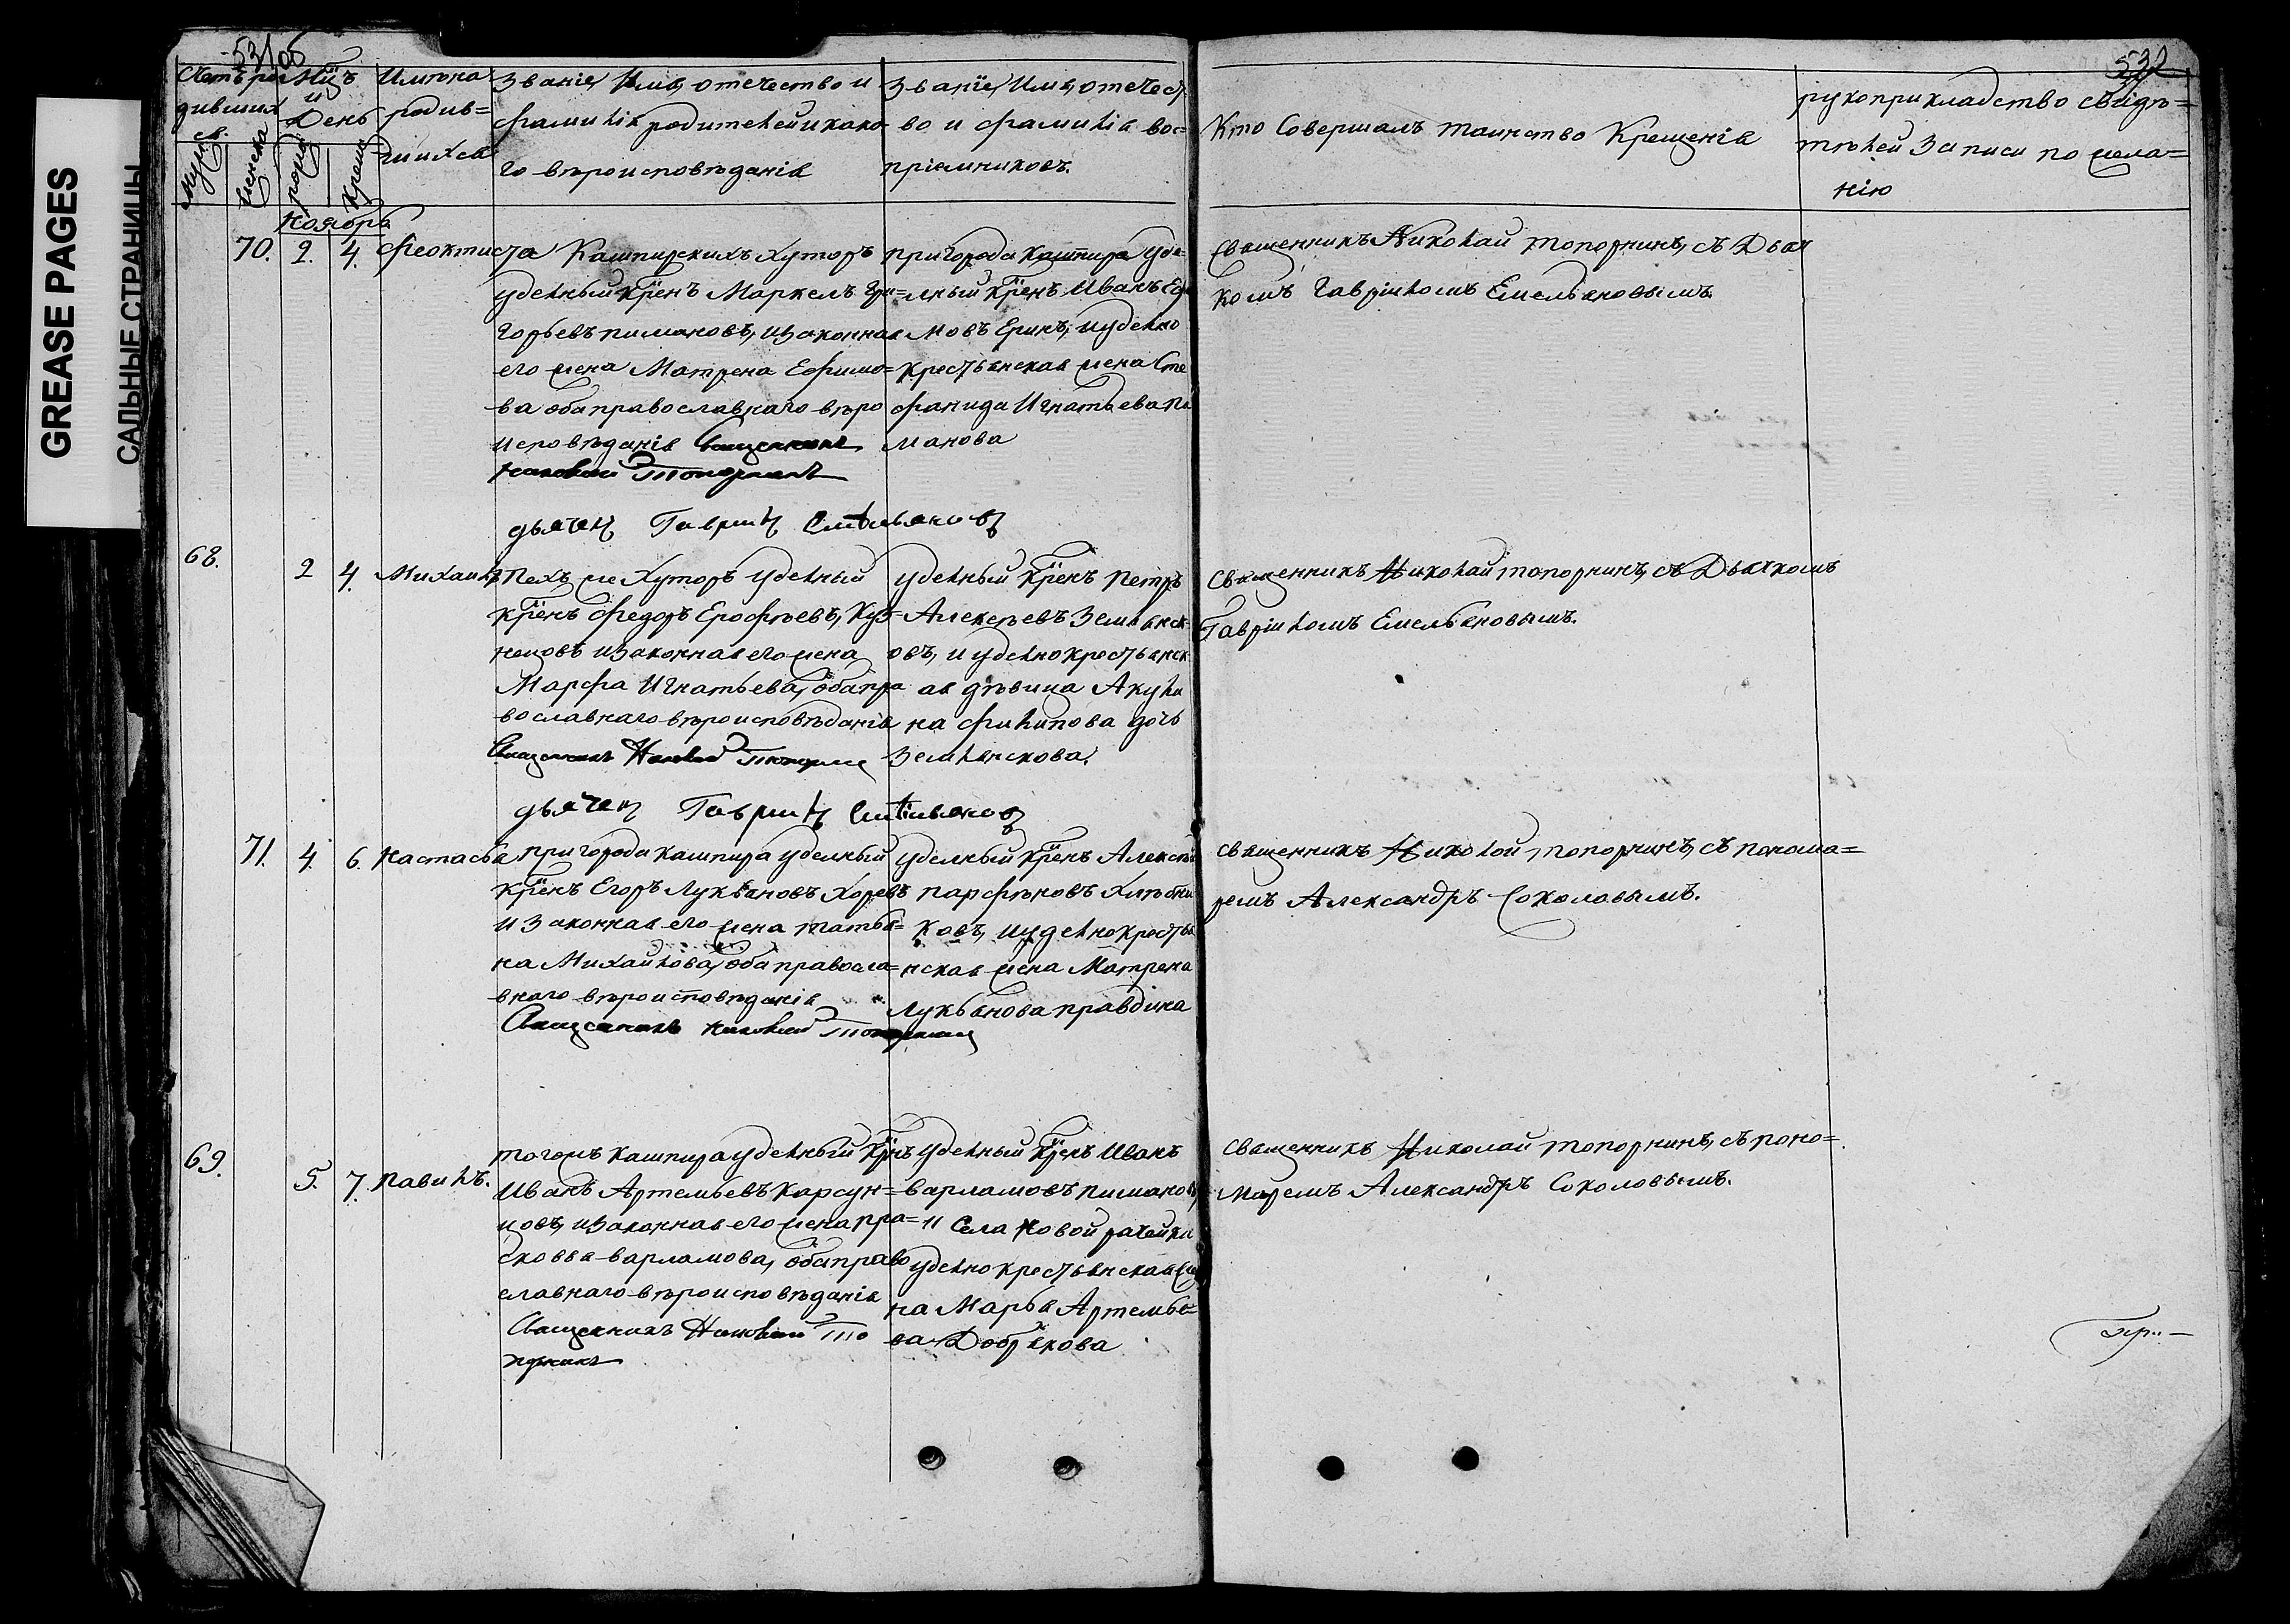 GREASE PAGES
САЛЬНЫЕ СТРАНИЦЫ
531об
532
Счетъ ро
дивших
ся.
Мцъ
и
День
Имѣна
родив=
шихся
Званіе, Имя, отечество и
фамилія родителей и како
го вѣроисповѣданія
Званіе, Имя, отечест
во и фамилія вос=
пріемниковъ.
Кто Совершалъ таинство Крещенія
рукоприкладство свидѣ=
телей Записи по жела=
нію
муж
женска
рожд
Креще
Ноября
70. 2. 4. Феоктиста
Кашпирскихъ Хуторъ
удельный крⷭ҇енъ Маркелъ Гри=
горьевъ пимановъ, и Законная
его жена Матрена Ефимо=
ва оба православнаго вѣро
исповѣданія Священникъ
Николай Топорнинъ
дьячекъ Гаврилъ Емельяновъ
пригорода Кашпира уде=
лный крⷭ҇енъ Иванъ Еф
мовъ Еринъ, и удельно
крестьянская жена Сте
фанида Игнатьева Пи
манова
Священникъ Николай топорнинъ, съ Дьяч
комъ Гавріиломъ Емельяновымъ.
68. 2 4. Михаилъ
Техъ же Хуторъ удельный
крⷭ҇енъ Федоръ Ерофѣевъ, Куз=
нецовъ и Законная его жена
Марфа Игнатьева, оба пра
вославнаго вѣроисповѣданія
Священникъ Николай Топорнин
дьячекъ Гаврилъ Емельяновъ
удельный крⷭ҇енъ Петръ
Алексѣевъ Землянск
овъ, и удельно крестьянск
ая дѣвица Акули
на Филипова дочь
Землянскова.
Священникъ Николай топорнинъ, съ Дьячкомъ
Гавріиломъ Емельяновымъ.
71. 4. 6. Настасья
пригорода Кашпира уделный
крⷭ҇енъ Егоръ Лукьяновъ Хоревъ
и Законная его жена татья=
на Михайлова, оба правосла=
внаго вѣроисповѣданія
Священникъ Николай Топорнинъ
уделный крⷭ҇енъ Алексѣй
парфѣновъ Хлѣбни
ковъ, и удельно крестья
нская жена Матрена
Лукьянова правдина
Священникъ Николай топорнинъ, съ понома=
ремъ Александръ Соколовымъ.
69. 5. 7. Павилъ.
тогожъ Кашпира удельный крⷭ҇нъ
Иванъ Артемьевъ Карсун=
цовъ, и Законная его жена пра=
сковья варламова, оба право
славнаго вѣроисповѣданія
Священникъ Николай То
порнинъ
удельный крⷭ҇енъ Иванъ
варламовъ пимановъ
и Села Новой рачейки
удельно крестьянская же
на Марья Артемье=
ва Добрякова
Священникъ Николай топорнинъ, съ поно=
маремъ Александръ Соколовымъ.